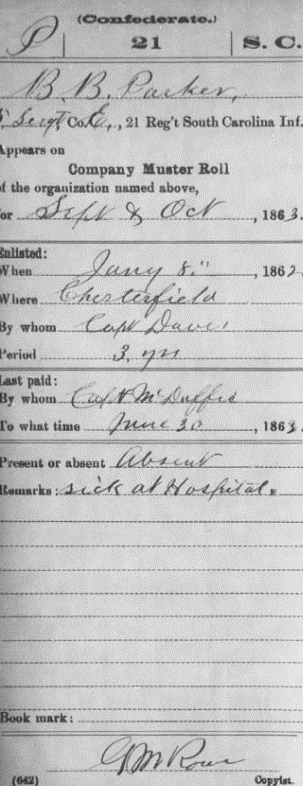 (Confederate.)
P 21 S. C.
B B. Parker,
Sergt Co. E, , 21 Reg't South Carolina Inf.
Appears on
Company Muster Roll
of the organization named above,
for Sept & Oct , 1863.
Enlisted:
When Jany 8" , 1862.
Where Chesterfield
By whom Capt Davis
Period 3. yrs
Last paid:
By whom Capt McDuffie
To what time June 30 , 1863.
Present or absent Absent
Remarks: sick at Hospital.
Book mark:
(642) Copyist.